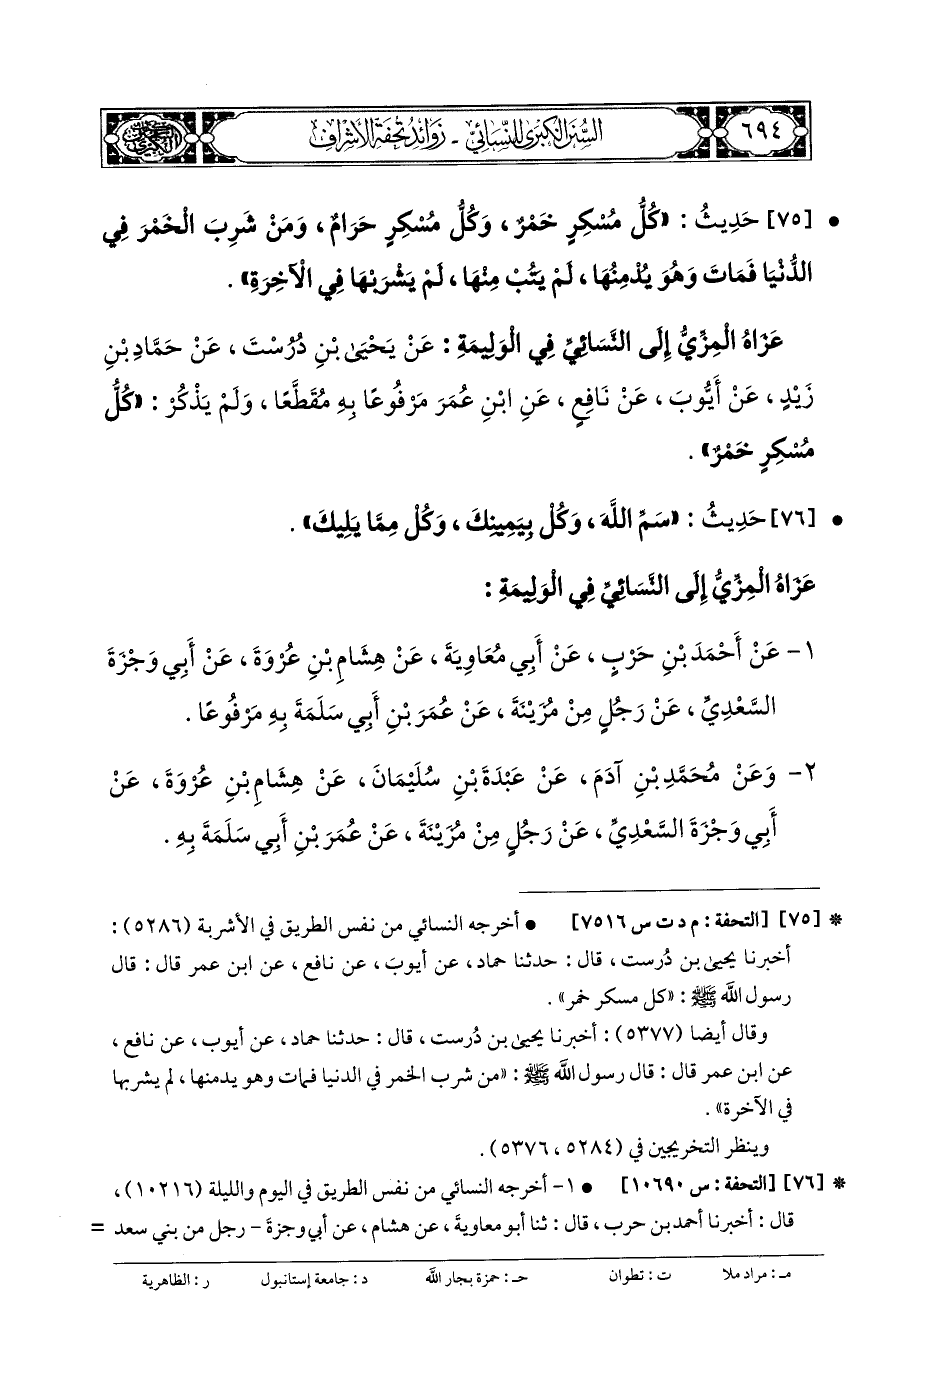 ٦٩٤
السُّنَن الكبرى للنسائي - زوائد تحفة الأشراف
• [٧٥] حَدِيثُ : «كُلُّ مُسْكِرٍ خَمْرٌ ، وَكُلُّ مُسْكِرٍ حَرَامٌ ، وَمَنْ شَرِبَ الْخَمْرَ فِي
الدُّنْيَا فَمَاتَ وَهُوَ يُدْمِنُهَا ، لَمْ يَتُبْ مِنْهَا ، لَمْ يَشْرَبْهَا فِي الْآخِرَةِ» .
عَزَاهُ الْمِزِّيُّ إِلَى النَّسَائِيِّ فِي الْوَلِيمَةِ : عَنْ يَحْيَىٰ بْنِ دُرُسْتَ ، عَنْ حَمَّادِ بْنِ
زَيْدٍ ، عَنْ أَيُّوبَ ، عَنْ نَافِعٍ ، عَنِ ابْنِ عُمَرَ مَرْفُوعًا بِهِ مُقَطَّعًا ، وَلَمْ يَذْكُرْ : «كُلُّ
مُسْكِرٍ خَمْرٌ» .
• [٧٦] حَدِيثُ : «سَمِّ اللَّهَ ، وَكُلْ بِيَمِينِكَ ، وَكُلْ مِمَّا يَلِيكَ» .
عَزَاهُ الْمِزِّيُّ إِلَى النَّسَائِيِّ فِي الْوَلِيمَةِ :
١- عَنْ أَحْمَدَ بْنِ حَرْبٍ ، عَنْ أَبِي مُعَاوِيَةَ ، عَنْ هِشَامِ بْنِ عُرْوَةَ ، عَنْ أَبِي وَجْزَةَ
السَّعْدِيِّ ، عَنْ رَجُلٍ مِنْ مُزَيْنَةَ ، عَنْ عُمَرَ بْنِ أَبِي سَلَمَةَ بِهِ مَرْفُوعًا .
٢- وَعَنْ مُحَمَّدِ بْنِ آدَمَ ، عَنْ عَبْدَةَ بْنِ سُلَيْمَانَ ، عَنْ هِشَامِ بْنِ عُرْوَةَ ، عَنْ
أَبِي وَجْزَةَ السَّعْدِيِّ ، عَنْ رَجُلٍ مِنْ مُزَيْنَةَ ، عَنْ عُمَرَ بْنِ أَبِي سَلَمَةَ بِهِ .
* [٧٥] [التحفة : م د ت س ٧٥١٦] • أخرجه النسائي من نفس الطريق في الأشربة (٥٢٨٦) :
أخبرنا يحيىٰ بن دُرست ، قال : حدثنا حماد ، عن أيوبَ ، عن نافع ، عن ابن عمر قال : قال
رسول اللَّه ﷺ : «كل مسكر خمر» .
وقال أيضا (٥٣٧٧) : أخبرنا يحيىٰ بن دُرست ، قال : حدثنا حماد ، عن أيوب ، عن نافع ،
عن ابن عمر قال : قال رسول اللَّه ﷺ : «من شرب الخمر في الدنيا فمات وهو يدمنها ، لم يشربها
في الآخرة» .
وينظر التخريجين في (٥٢٨٤ ، ٥٣٧٦) .
* [٧٦] [التحفة : س ١٠٦٩٠] • ١- أخرجه النسائي من نفس الطريق في اليوم والليلة (١٠٢١٦) ،
قال : أخبرنا أحمد بن حرب ، قال : ثنا أبو معاوية ، عن هشام ، عن أبي وجزة - رجل من بني سعد =
مـ : مراد ملا ت : تطوان حـ : حمزة بجار اللَّه د : جامعة إستانبول ر : الظاهرية